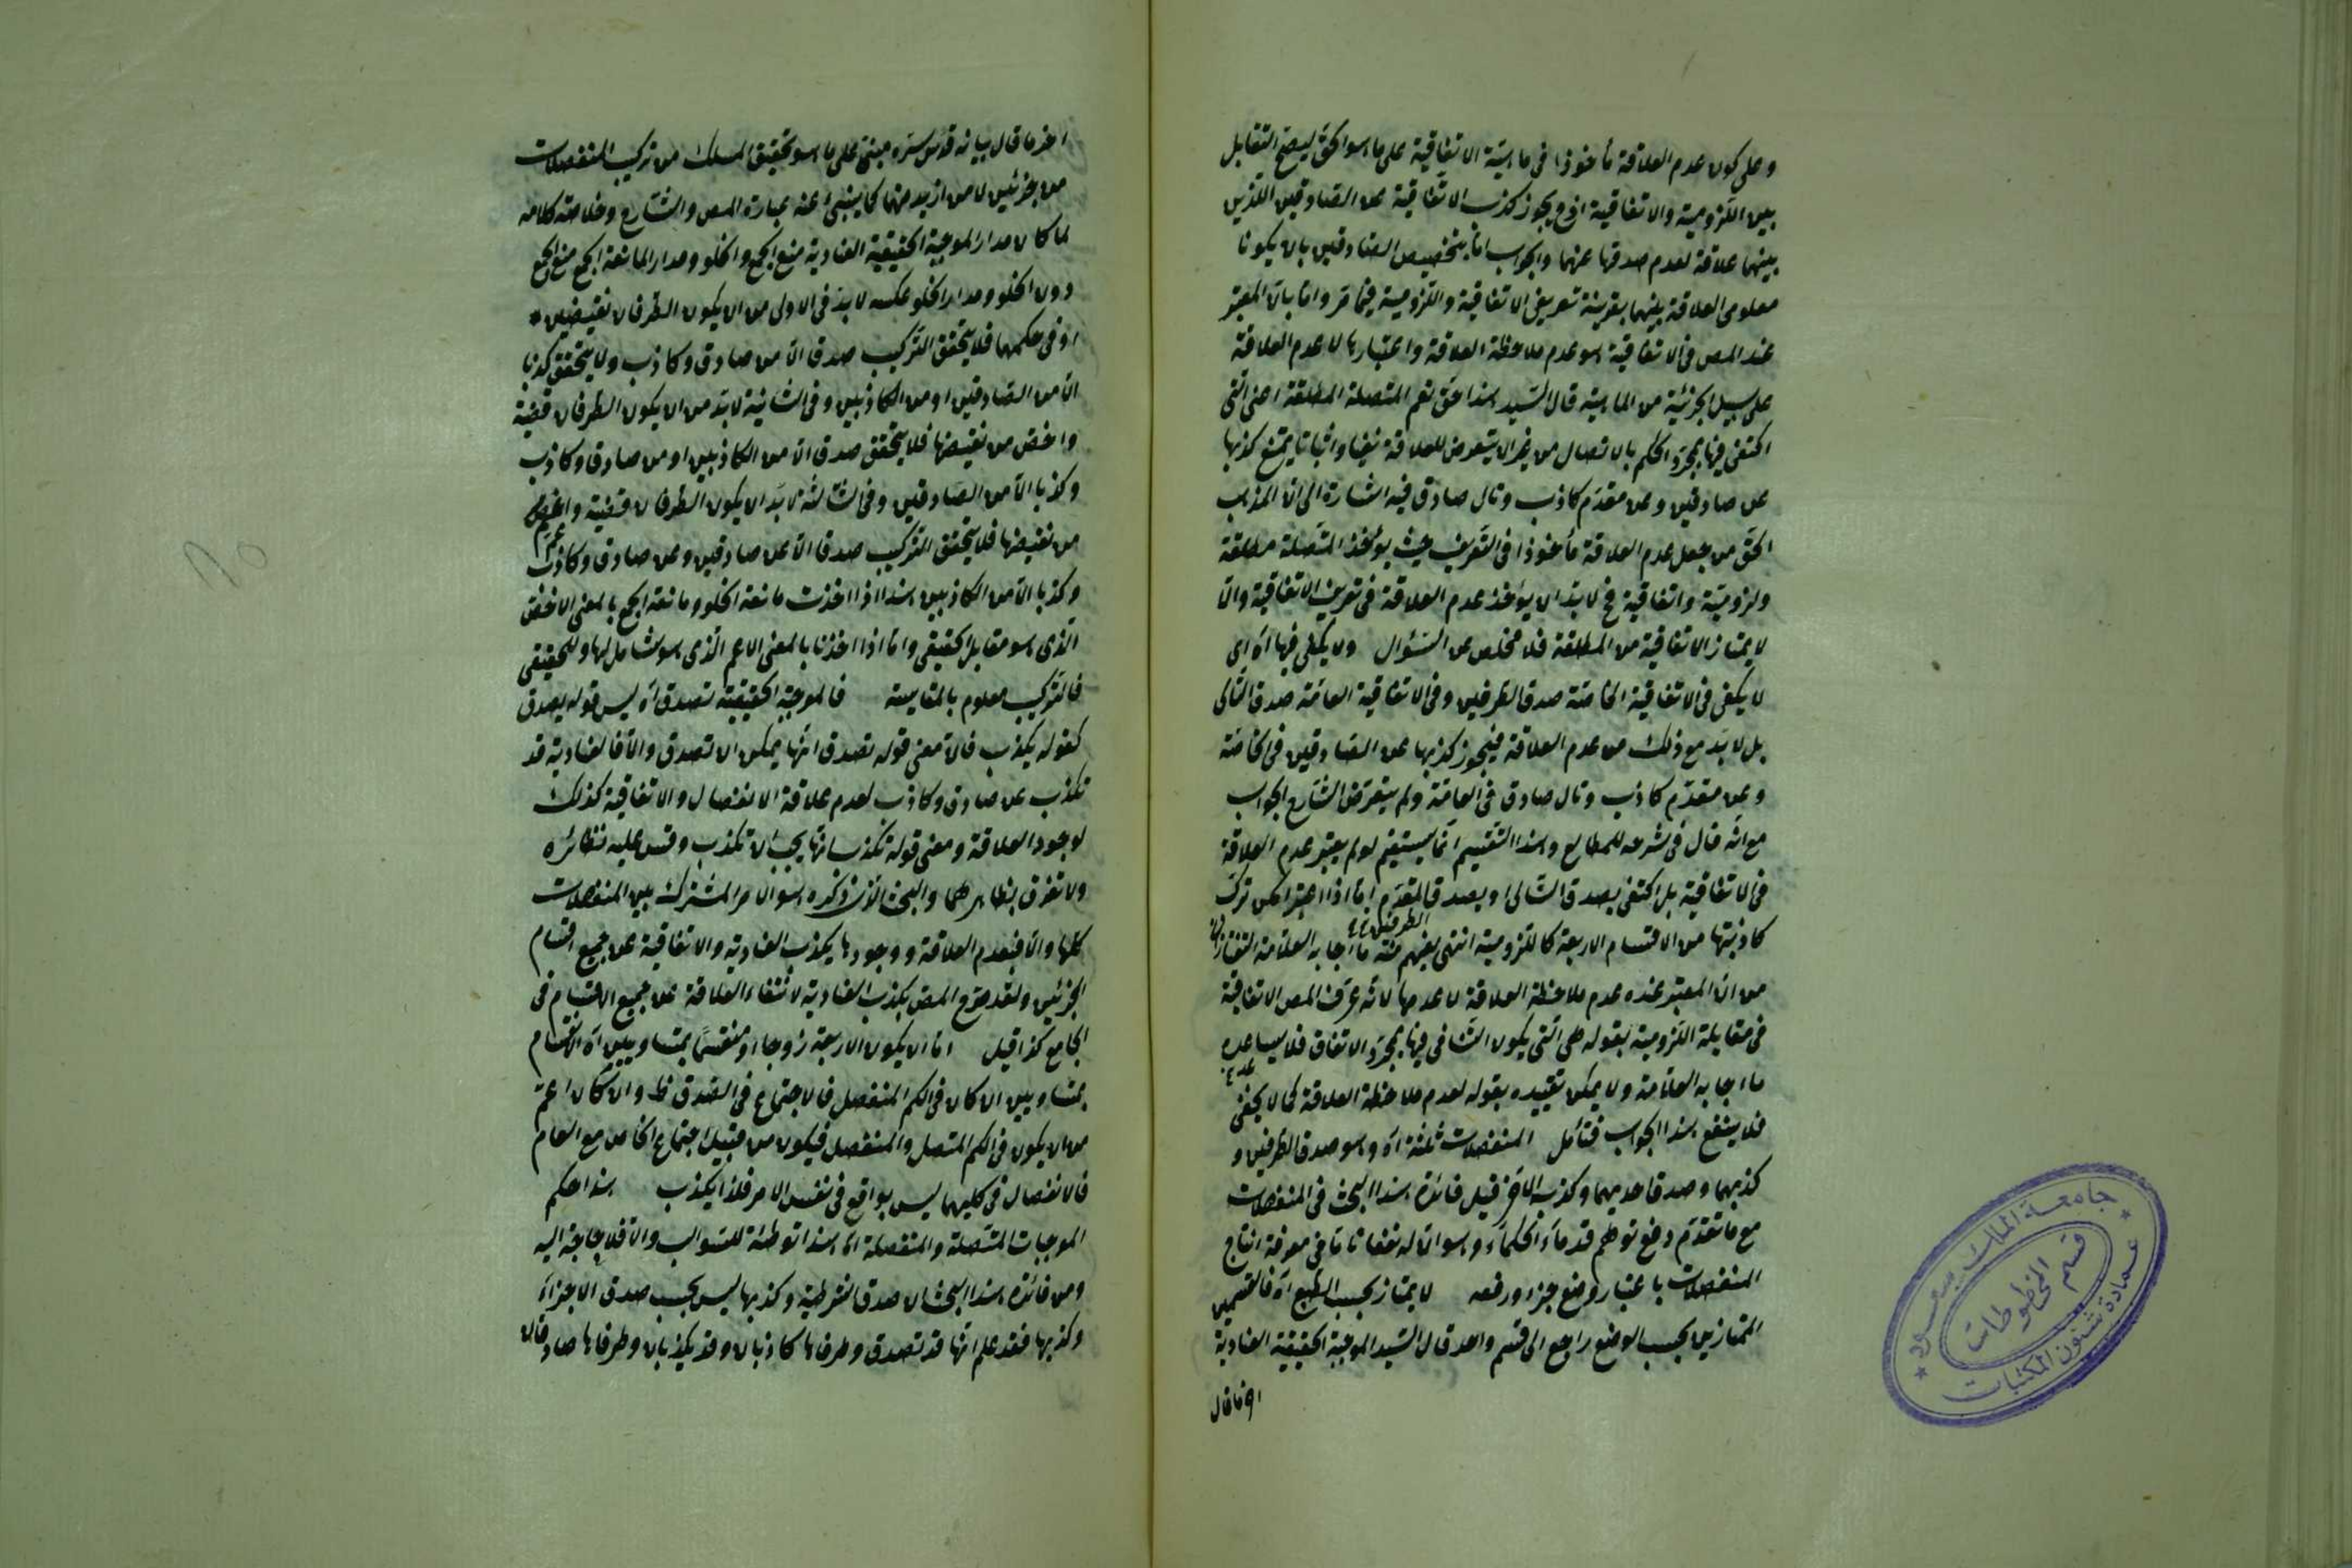 وعلى كون عدم العلاقة مأخوذا فى ماهية الاتفاقية على ما هو الحق ليصح التقابل
بين اللزومية والاتفاقية اذ ح يجوز كذب الاتفاقية عن الصادقين اللذين
بينهما علاقة لعدم صدقها عنهما والجواب اما بتخصيص الصادقين بان يكونا
معلومى العلاقة بينهما بقرينة تعريف الاتفاقية واللزومية فيما مر واما بان المعتبر
عند المص فى الاتفاقية هو عدم ملاحظة العلاقة واعتبارها لا عدم العلاقة
على سبيل الجزئية من الماهية قال السيد هذا حق نعم المتصلة المطلقة اعنى التى
اكتفى فيها بمجرد الحكم بالاتصال من غير ان يتعرض للعلاقة نفيا واثباتا يمتنع كذبها
عن صادقين وعن مقدم كاذب وتال صادق فيه اشارة الى ان المذهب
الحق من جعل عدم العلاقة مأخوذا فى التعريف حيث يؤخذ المتصلة مطلقة
ولزومية واتفاقية فح لا بد ان يؤخذ عدم العلاقة فى تعريف الاتفاقية والا
لا يمتاز الاتفاقية من المطلقة فلا مخلص عن السؤال ولا يكفى فيها آه اى
لا يكفى فى الاتفاقية الخاصة صدق الطرفين وفى الاتفاقية العامة صدق التالى
بل لا بد مع ذلك من عدم العلاقة فيجوز كذبها عن الصادقين فى الخاصة
وعن مقدم كاذب وتال صادق فى العامة ولم يتعرض الشارح الجواب
مع انه قال فى شرحه للمطالع وهذا التقسيم انما يستقيم لو لم يعتبر عدم العلاقة
فى الاتفاقية بل اكتفى بصدق التالى او بصدق المقدم اما اذا اعتبر امكن تركب
الطرفين
كاذبتها من الاقسام الاربعة كاللزومية انتهى يفهم منه ما اجابه العلامة التفتازانى
من ان المعتبر عنده عدم ملاحظة العلاقة لا عدمها لانه عرف المص الاتفاقية
فى مقابلة اللزومية بقوله هى التى يكون فيها بمجرد الاتفاق فلا يساعده
ما اجابه العلامة ولا يمكن تقييده بقوله لعدم ملاحظة العلاقة كما لا يخفى
فلا ينفع هذا الجواب فتأمل المنفصلات ثلثة آه وهو صدق الطرفين و
كذبهما وصدق احديهما وكذب الاخر قيل فائدة هذا البحث فى المنفصلات
مع ما تقدم دفع توهم قدماء الحكماء وهو ان له نفعا تاما فى معرفة انتاج
المنفصلات باعتبار وضع جزء ورفعه لا يمتاز بحسب الطبع آه فالقسمين
المتمازين بحسب الوضع راجع الى قسم واحد قال السيد الموجبة الحقيقية العنادية
اخر ما قال
اخر ما قال بيانه قدس سره مبنى على ما هو تحقيق المسلك من تركيب المنفصلات
من جزئين لا من ازيد منهما كما ينبئ عنه عبارة المص والشارح وخلاصة كلامه
لما كان مدار الموجبة الحقيقية العنادية منع الجمع والخلو ومدار المانعة الجمع منع الجمع
دون الخلو ومدار الخلو عكسه لا بد فى الاولى من ان يكون الطرفان نقيضين *
او فى حكمهما فلا يتحقق التركيب صدقا الا من صادق وكاذب ولا يتحقق كذبا
الا من الصادقين او من الكاذبين وفى الثانية لا بد من ان يكون الطرفان قضية
واخص من نقيضها فلا يتحقق صدقا الا من الكاذبين او من صادق وكاذب
وكذبا الا من الصادقين وفى الثالثة لا بد ان يكون الطرفان قضية واعم
من نقيضها فلا يتحقق التركيب صدقا الا عن صادقين وعن صادق وكاذب
وكذبا الا من الكاذبين هذا اذا اخذت مانعة الخلو ومانعة الجمع بالمعنى الاخص
الذى هو مقابل الحقيقى واما اذا اخذنا بالمعنى الاعم الذى هو شامل لها وللحقيقى
فالتركيب معلوم بالمقايسة فالموجبة الحقيقية تصدق آه ليس قوله يصدق
كقوله يكذب فان معنى قوله تصدق انها يمكن ان تصدق والا فالعنادية قد
تكذب عن صادق وكاذب لعدم علاقة الانفصال والاتفاقية كذلك
لوجود العلاقة ومعنى قوله تكذب انها يجب ان تكذب وقس عليه نظائره
ولا تفرق بظاهرهما والبحث الذى ذكره هو الامر المشترك بين المنفصلات
كلها والا فبعدم العلاقة ووجودها يكذب العنادية والاتفاقية عن جميع اقسام
الجزئين ولقد صرح المص بكذب العنادية لانتفاء العلاقة عن جميع الاقسام فى
الجامع كذا قيل اما ان يكون الاربعة زوجا او منقسما بمتساويين آه الانقسام
بمتساويين ان كان فى الكم المنفصل فالاجتماع فى الصدق ظ وان كان اعم
من ان يكون فى الكم المتصل والمنفصل فيكون من قبيل اجتماع الخاص مع العام
فالانفصال فى كليهما ليس بواقع فى نفس الامر فلذا يكذب هذا حكم
الموجبات المتصلة والمنفصلة اه هذا توطئة للسوالب والا فلا حاجة اليه
ومن فائدة هذا البحث ان صدق الشرطية وكذبها ليس بحسب صدق الاجزاء
وكذبها فقد علم انها قد تصدق وطرفاها كاذبان وقد يكذبان وطرفاها صادقان
جامعة الملك سعود
قسم المخطوطات
عمادة شئون المكتبات